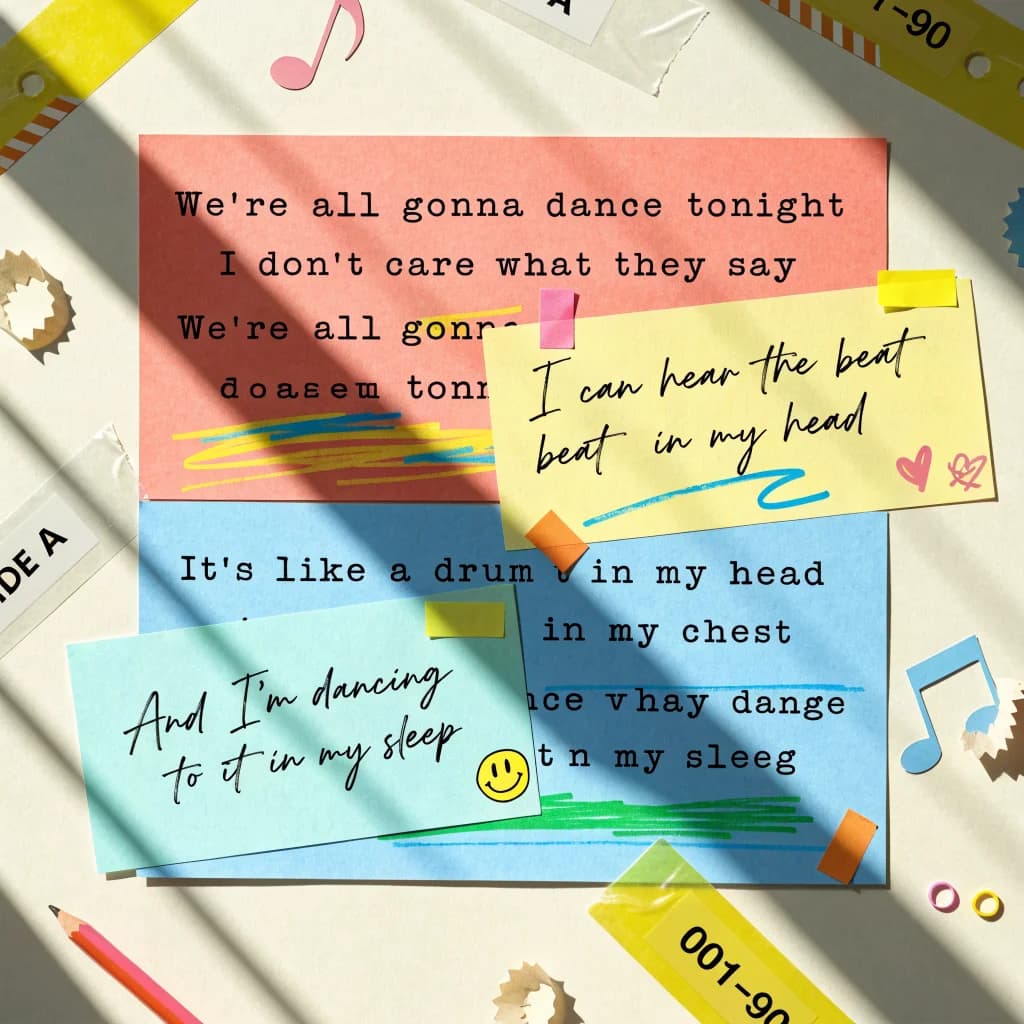 A
1-90
We're all gonna dance tonight
I don't care what they say
We're all gonna
doasem tonn
I can hear the beat
beat in my head
DE A
It's like a drum in my head
in my chest
nce vhay dange
t n my sleeg
And I'm dancing
to it in my sleep
001-90